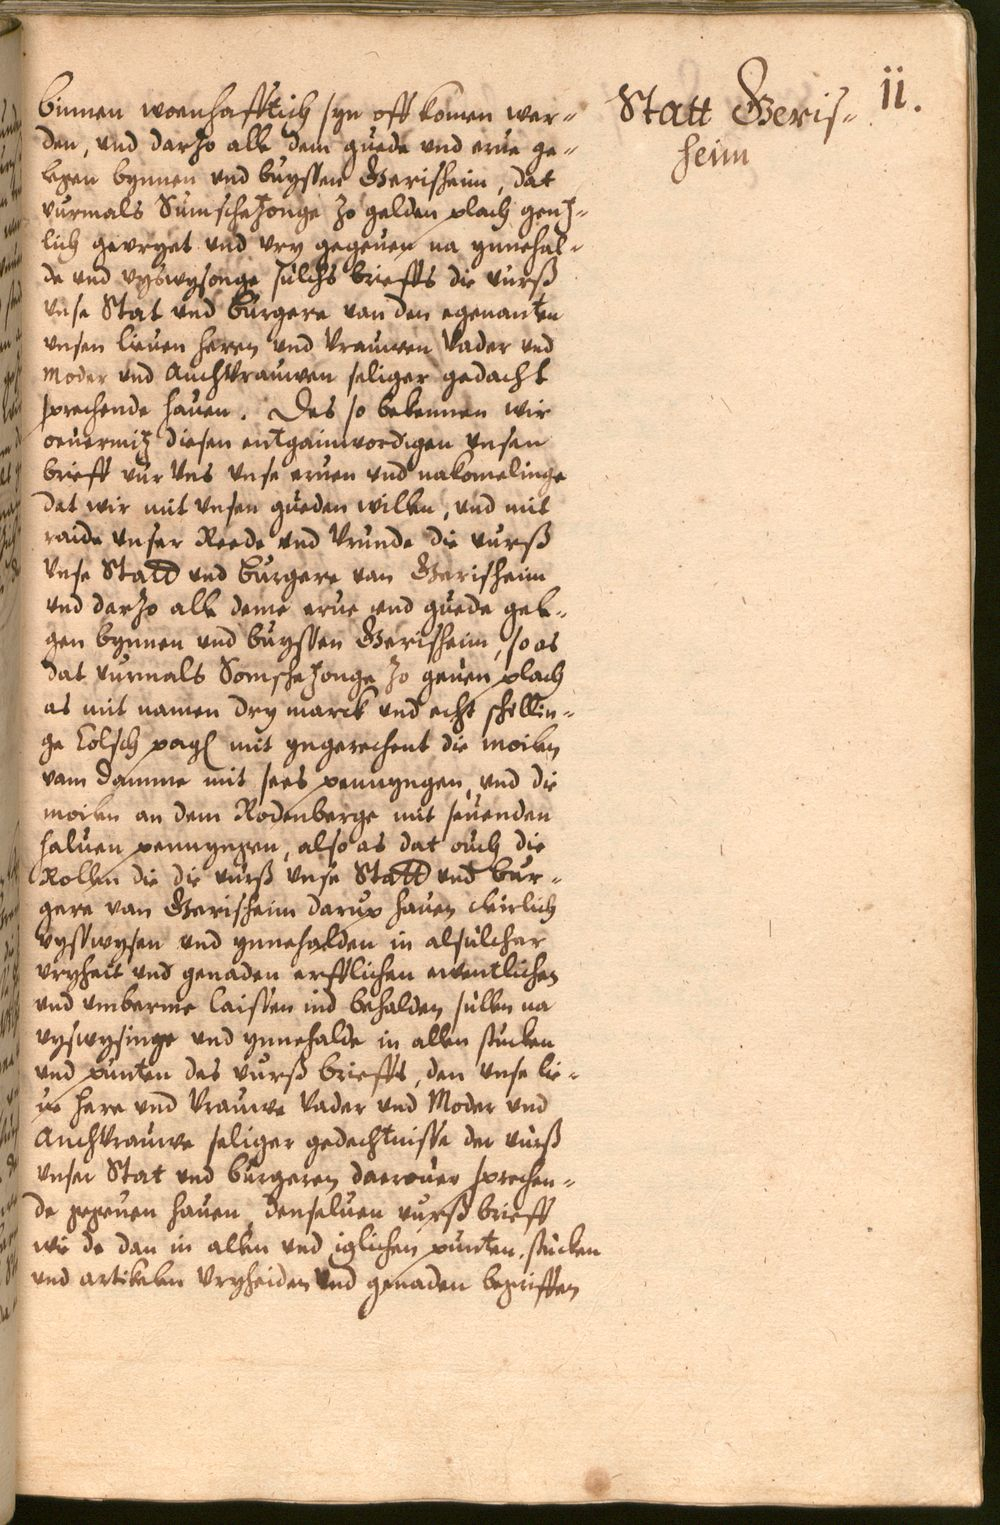 11.
Statt Geris-
heim
binnen woenhafftich syn off komen wer-
den, vnd darzo all dem guede vnd erue ge-
legen bynnen vnd buyssen Gerisheim, dat
vurmals Sumschetzonge zo gelden plach gentz-
lich gevryet vnd vry gegeuen na ynnehal-
de vnd vyswysonge sulchs brieffs die vurß
vnse Stat vnd burgere van den egenanten
vnsen lieuen heren vnd Vrauwen Vader vnd
Moder vnd Anchvrauwen seliger gedacht
sprechende hauen. Des so bekennen wir
ouermitz diesen entgainwordigen vnsen
brieff vur Vns vnse eruen vnd nakomelinge
dat wir mit vnsen gueden willen, vnd mit
raide vnser Reede vnd Vrunde die vurß
Vnse Stadt vnd burgere van Gerisheim
vnd darzo all deme erue vnd guede gele-
gen bynnen vnd buyssen Gerisheim, so as
dat vurmals Somschetzonge zo geuen plach
as mit namen dry marck vnd echt schillin-
ge Colsch pag mit yngerechent die moilen
vam Damme mit sees pennyngen, vnd die
moilen an dem Rodenberge mit seuenden
haluen pennyngen, also as dat ouch die
Rollen die die vurß vnse Stadt vnd bur-
gere van Gerisheim darup hauen cleirlich
vysswysen vnd ynnehalden in alsulcher
vryheit vnd genaden erfflichen ewentlichen
vnd vmberme laissen ind behalden sullen na
vyswysinge vnd ynnehalde in allen stucken
vnd punten des vurß brieffs, den vnse lie-
ue here vnd Vrauwe Vader vnd Moder vnd
Anchvrauwe seliger gedechtnisse der vurß
vnser Stat vnd burgeren daerouer sprechen-
de gegeuen hauen, denseluen vurß brieff
wie de dan in allen vnd iglichen punten, stucken
vnd artikelen Vryheiden vnd genaden begriffen